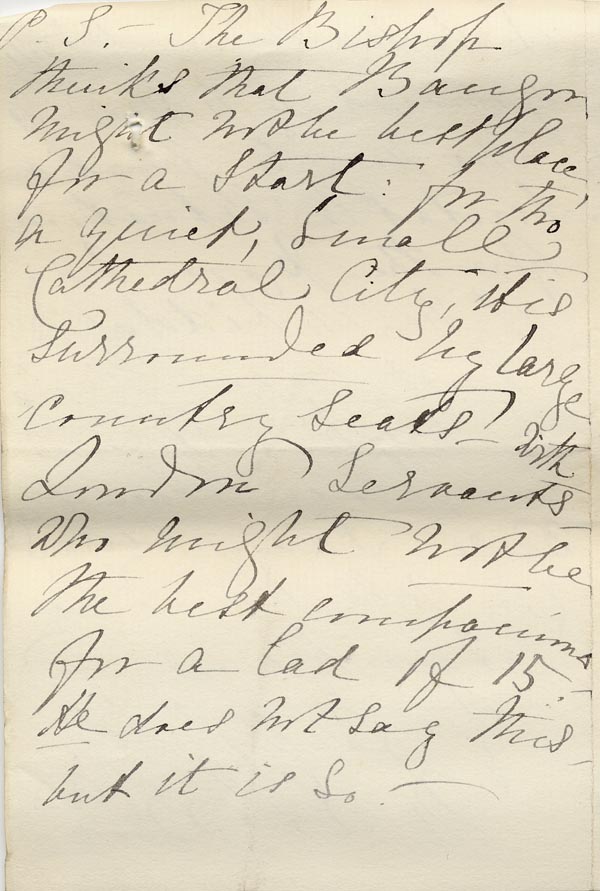 P. S. — The Bishop
thinks that Bangor
might not be best place,
for a Start: for tho'
a quiet, Small
Cathedral City, it is
surrounded by large
country seats — with
London Servants —
who might not be
the best companions
for a lad of 15 —
He does not say this —
but it is so. —